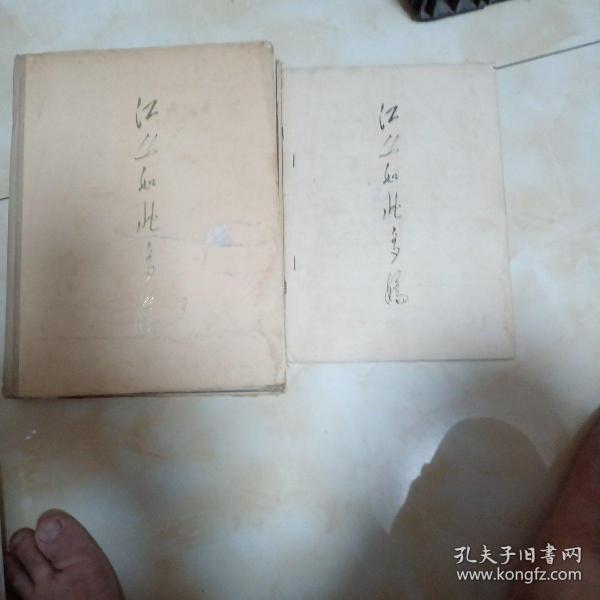 江山如此多娇
江山如此多娇
孔夫子旧書网
www.kongfz.com